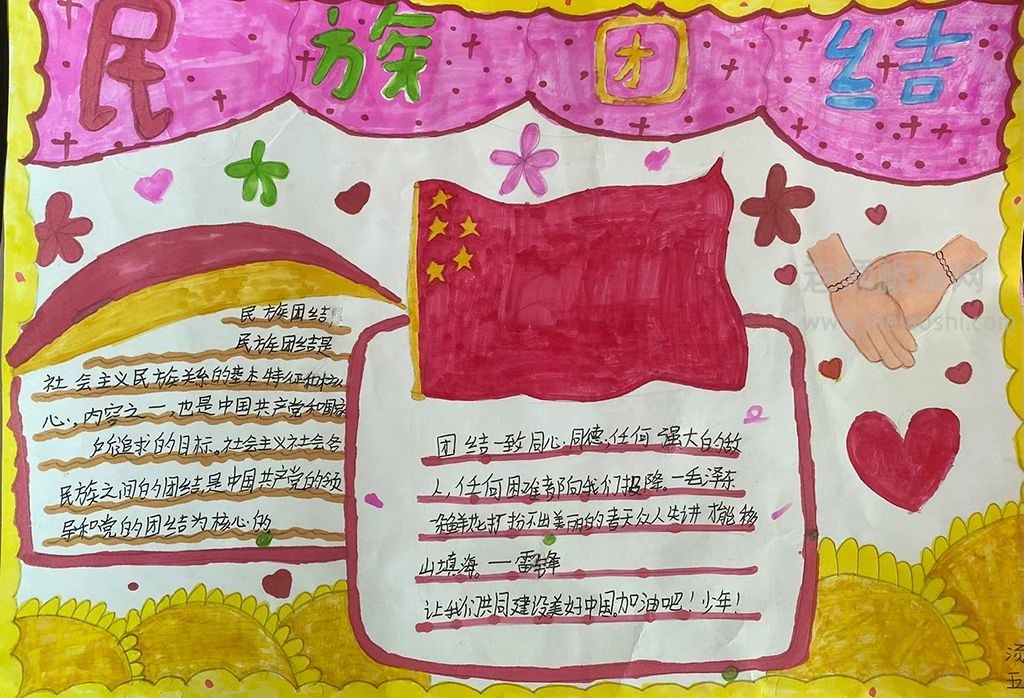 民族团结
民族团结
民族团结是
社会主义民族关系的基本特征和核
心,内容之一,也是中国共产党和国家
所追求的目标。社会主义社会各
民族之间的团结是中国共产党的领
导和党的团结为核心的
团结一致,同心同德,任何强大的敌
人,任何困难都向我们投降。一毛泽东
一朵鲜花打扮不出美丽的春天众人先进才能移
山填海。一雷锋
让我们共同建设美好中国,加油吧!少年!
五